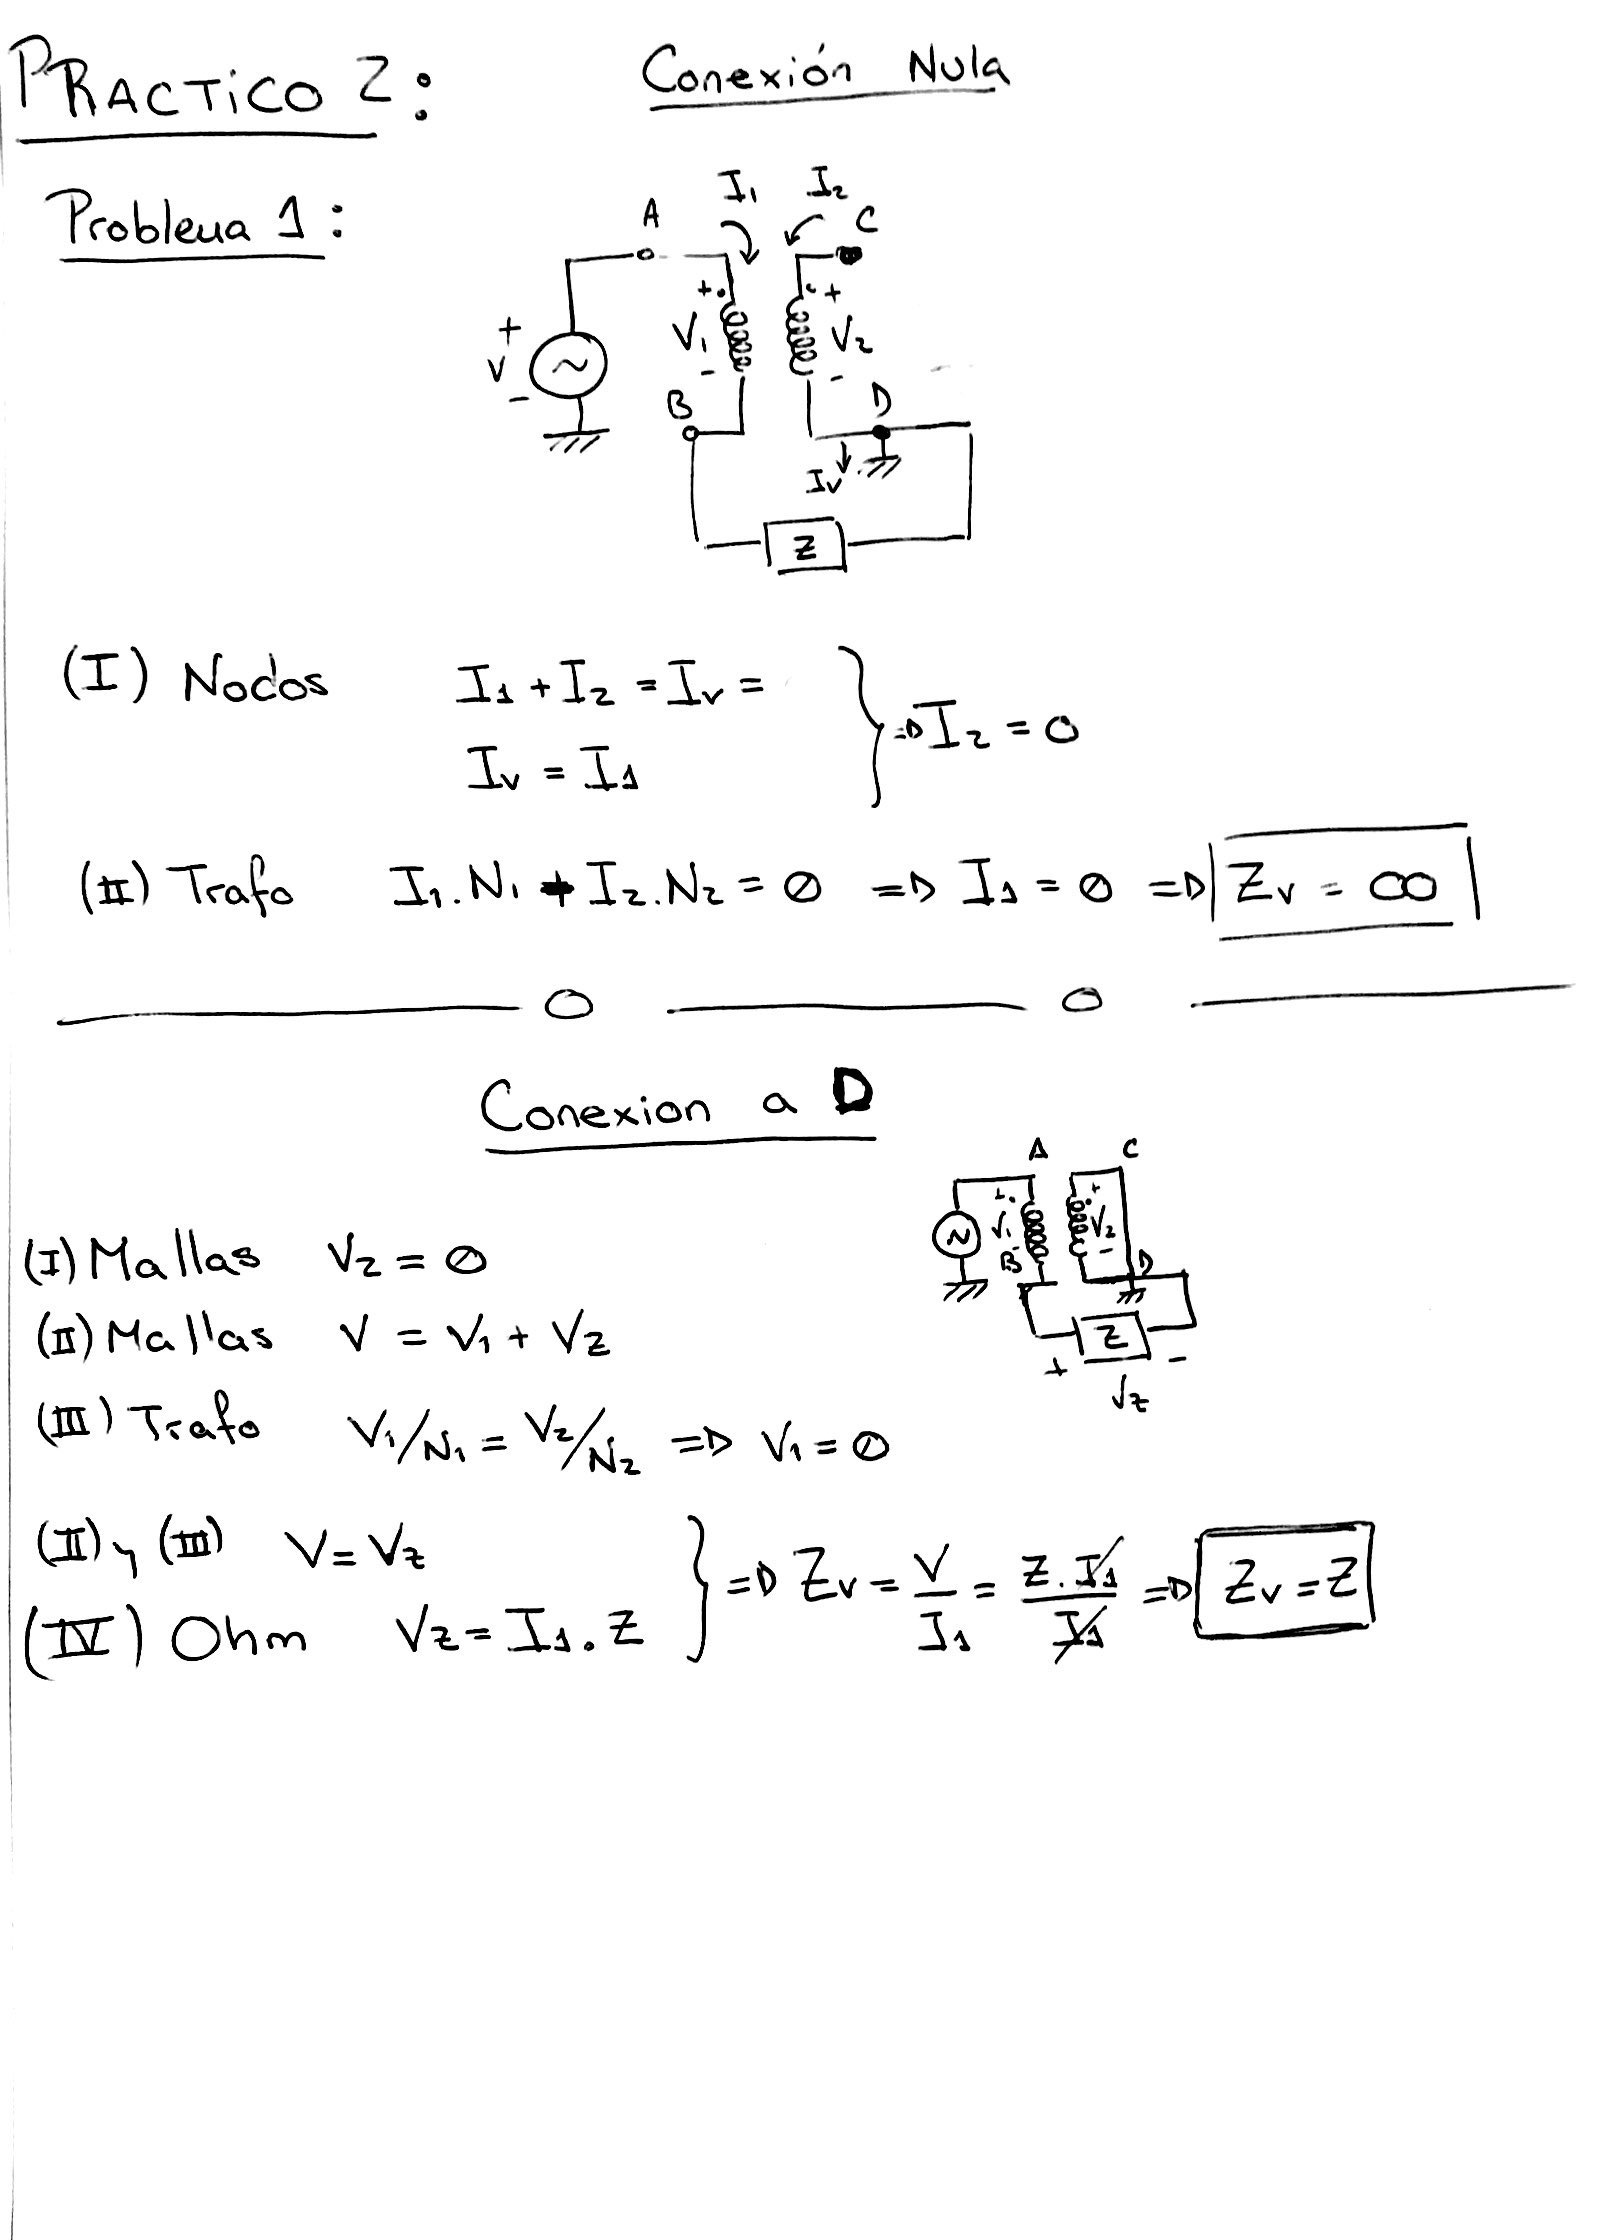 PRACTICO 2:
Conexión Nula
Problema 1:
I1 I2
A C
+ +. .+
V V1 V2
- - -
B D
Iv
Z
(I) Nodos I1 + I2 = Iv =
Iv = I1
} => I2 = 0
(II) Trafo I1.N1 + I2.N2 = 0 => I1 = 0 => Zv = ∞
Conexion a D
A C
+. .+
V1 V2
- -
B D
Z
+ -
Vz
(I) Mallas V2 = 0
(II) Mallas V = V1 + Vz
(III) Trafo V1/N1 = V2/N2 => V1 = 0
(II) y (III) V = Vz
(IV) Ohm Vz = I1.Z
} => Zv = V/I1 = Z.I1/I1 => Zv = Z